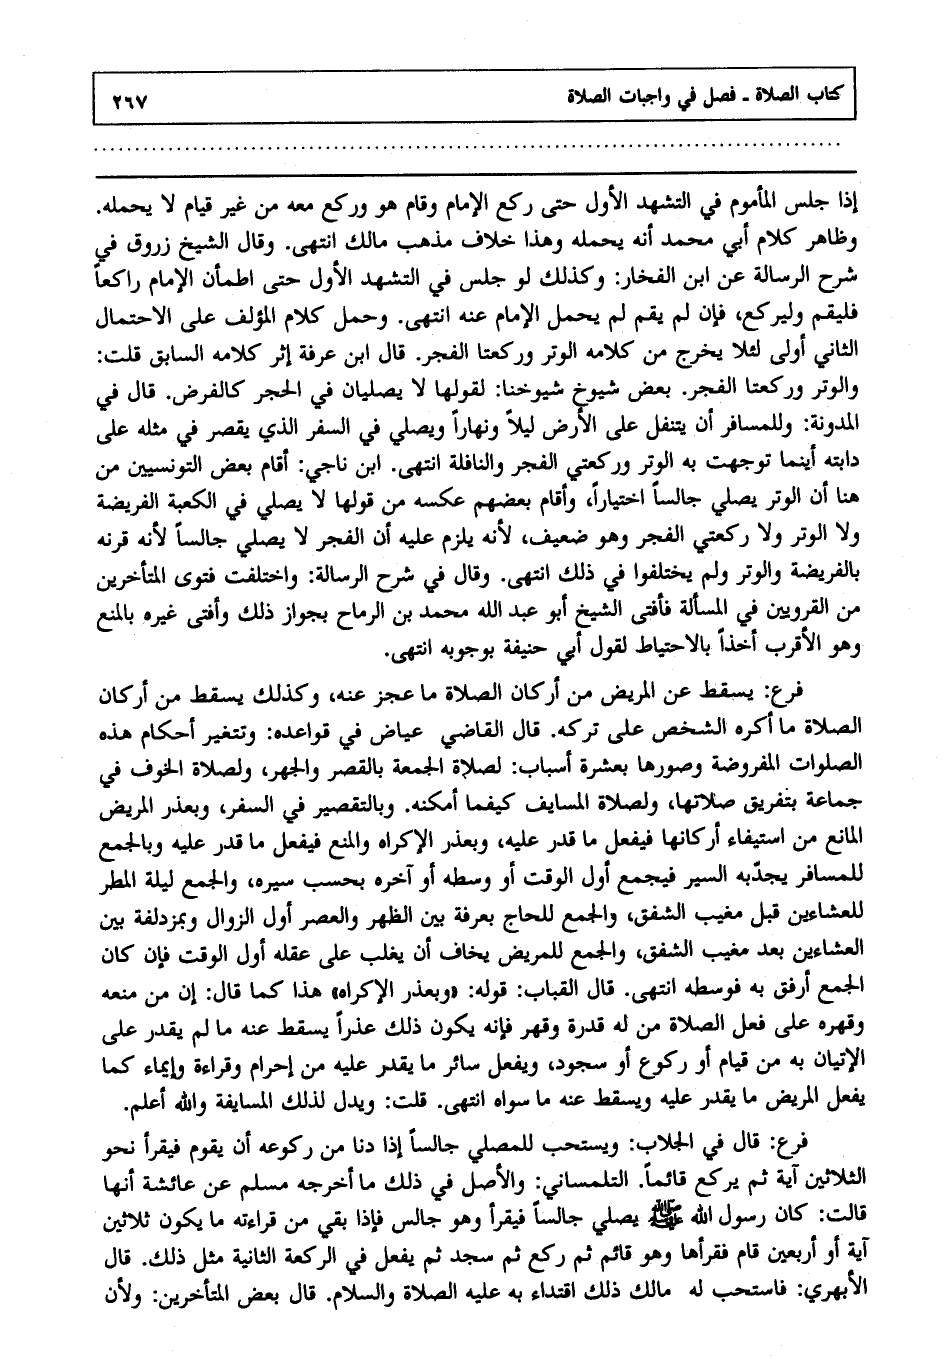 كتاب الصلاة ـ فصل في واجبات الصلاة ٢٦٧
إذا جلس المأموم في التشهد الأول حتى ركع الإمام وقام هو وركع معه من غير قيام لا يحمله.
وظاهر كلام أبي محمد أنه يحمله وهذا خلاف مذهب مالك انتهى. وقال الشيخ زروق في
شرح الرسالة عن ابن الفخار: وكذلك لو جلس في التشهد الأول حتى اطمأن الإمام راكعاً
فليقم وليركع، فإن لم يقم لم يحمل الإمام عنه انتهى. وحمل كلام المؤلف على الاحتمال
الثاني أولى لئلا يخرج من كلامه الوتر وركعتا الفجر. قال ابن عرفة إثر كلامه السابق قلت:
والوتر وركعتا الفجر. بعض شيوخ شيوخنا: لقولها لا يصليان في الحجر كالفرض. قال في
المدونة: وللمسافر أن يتنفل على الأرض ليلاً ونهاراً ويصلي في السفر الذي يقصر في مثله على
دابته أينما توجهت به الوتر وركعتي الفجر والنافلة انتهى. ابن ناجي: أقام بعض التونسيين من
هنا أن الوتر يصلي جالساً اختياراً، وأقام بعضهم عكسه من قولها لا يصلي في الكعبة الفريضة
ولا الوتر ولا ركعتي الفجر وهو ضعيف، لأنه يلزم عليه أن الفجر لا يصلي جالساً لأنه قرنه
بالفريضة والوتر ولم يختلفوا في ذلك انتهى. وقال في شرح الرسالة: واختلفت فتوى المتأخرين
من القرويين في المسألة فأفتى الشيخ أبو عبد الله محمد بن الرماح بجواز ذلك وأفتى غيره بالمنع
وهو الأقرب أخذاً بالاحتياط لقول أبي حنيفة بوجوبه انتهى.
فرع: يسقط عن المريض من أركان الصلاة ما عجز عنه، وكذلك يسقط من أركان
الصلاة ما أكره الشخص على تركه. قال القاضي عياض في قواعده: وتتغير أحكام هذه
الصلوات المفروضة وصورها بعشرة أسباب: لصلاة الجمعة بالقصر والجهر، ولصلاة الخوف في
جماعة بتفريق صلاتها، ولصلاة المسايف كيفما أمكنه. وبالتقصير في السفر، وبعذر المريض
المانع من استيفاء أركانها فيفعل ما قدر عليه، وبعذر الإكراه والمنع فيفعل ما قدر عليه وبالجمع
للمسافر يجدّبه السير فيجمع أول الوقت أو وسطه أو آخره بحسب سيره، والجمع ليلة المطر
للعشاءين قبل مغيب الشفق، والجمع للحاج بعرفة بين الظهر والعصر أول الزوال وبمزدلفة بين
العشاءين بعد مغيب الشفق، والجمع للمريض يخاف أن يغلب على عقله أول الوقت فإن كان
الجمع أرفق به فوسطه انتهى. قال القباب: قوله: «وبعذر الإكراه» هذا كما قال: إن من منعه
وقهره على فعل الصلاة من له قدرة وقهر فإنه يكون ذلك عذراً يسقط عنه ما لم يقدر على
الإتيان به من قيام أو ركوع أو سجود، ويفعل سائر ما يقدر عليه من إحرام وقراءة وإيماء كما
يفعل المريض ما يقدر عليه ويسقط عنه ما سواه انتهى. قلت: ويدل لذلك المسايفة والله أعلم.
فرع: قال في الجلاب: ويستحب للمصلي جالساً إذا دنا من ركوعه أن يقوم فيقرأ نحو
الثلاثين آية ثم يركع قائماً. التلمساني: والأصل في ذلك ما أخرجه مسلم عن عائشة أنها
قالت: كان رسول الله ﷺ يصلي جالساً فيقرأ وهو جالس فإذا بقي من قراءته ما يكون ثلاثين
آية أو أربعين قام فقرأها وهو قائم ثم ركع ثم سجد ثم يفعل في الركعة الثانية مثل ذلك. قال
الأبهري: فاستحب له مالك ذلك اقتداء به عليه الصلاة والسلام. قال بعض المتأخرين: ولأن